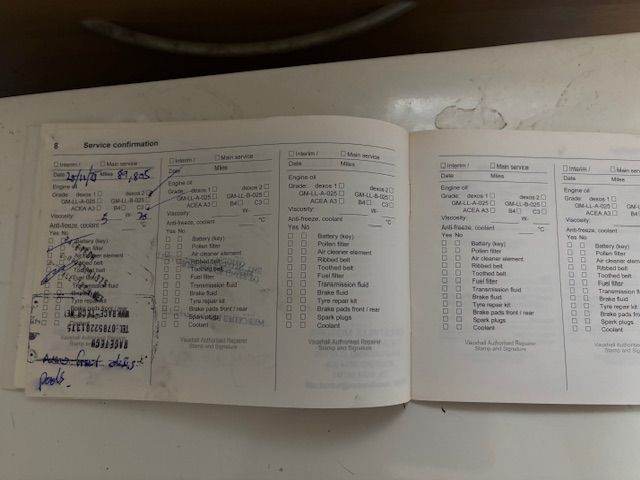 8 Service confirmation
□ Interim / □ Main service
Date Miles 87,805
Engine oil
Grade: dexos 1 □ dexos 2 □
GM-LL-A-025 □ GM-LL-B-025 □
ACEA A3 □ B4 □ C3 □
Viscosity: 5 W-
Anti-freeze, coolant °C
Yes No
Battery (key)
Pollen filter
Air cleaner element
Ribbed belt
Toothed belt
Fuel filter
Transmission fluid
Brake fluid
Tyre repair kit
RACETECH
Vauxhall Authorised Repairer
Stamp and Signature
pads.
□ Interim / □ Main service
Date Miles
Engine oil
Grade: dexos 1 □ dexos 2 □
GM-LL-A-025 □ GM-LL-B-025 □
ACEA A3 □ B4 □ C3 □
Viscosity: W-
Anti-freeze, coolant °C
Yes No
□ □ Battery (key)
□ □ Pollen filter
□ □ Air cleaner element
□ □ Ribbed belt
□ □ Toothed belt
□ □ Fuel filter
□ □ Transmission fluid
□ □ Brake fluid
□ □ Tyre repair kit
□ □ Brake pads front / rear
□ □ Spark plugs
□ □ Coolant
Vauxhall Authorised Repairer
Stamp and Signature
□ Interim / □ Main service
Date Miles
Engine oil
Grade: dexos 1 □ dexos 2 □
GM-LL-A-025 □ GM-LL-B-025 □
ACEA A3 □ B4 □ C3 □
Viscosity: W-
Anti-freeze, coolant °C
Yes No
□ □ Battery (key)
□ □ Pollen filter
□ □ Air cleaner element
□ □ Ribbed belt
□ □ Toothed belt
□ □ Fuel filter
□ □ Transmission fluid
□ □ Brake fluid
□ □ Tyre repair kit
□ □ Brake pads front / rear
□ □ Spark plugs
□ □ Coolant
Vauxhall Authorised Repairer
Stamp and Signature
□ Interim / □ Main service
Date Miles
Engine oil
Grade: dexos 1 □ dexos 2 □
GM-LL-A-025 □ GM-LL-B-025 □
ACEA A3 □ B4 □ C3 □
Viscosity: W-
Anti-freeze, coolant °C
Yes No
□ □ Battery (key)
□ □ Pollen filter
□ □ Air cleaner element
□ □ Ribbed belt
□ □ Toothed belt
□ □ Fuel filter
□ □ Transmission fluid
□ □ Brake fluid
□ □ Tyre repair kit
□ □ Brake pads front / rear
□ □ Spark plugs
□ □ Coolant
Vauxhall Authorised Repairer
Stamp and Signature
□ Interim / □ Main
Date Miles
Engine oil
Grade: dexos 1 □
GM-LL-A-025 □
ACEA A3 □
Viscosity:
Anti-freeze, coolant
Yes No
□ □ Battery (key)
□ □ Pollen filter
□ □ Air cleaner elem
□ □ Ribbed belt
□ □ Toothed belt
□ □ Fuel filter
□ □ Transmission fl
□ □ Brake fluid
□ □ Tyre repair kit
□ □ Brake pads fron
□ □ Spark plugs
□ □ Coolant
Vauxhall Authorised
Stamp and Sign